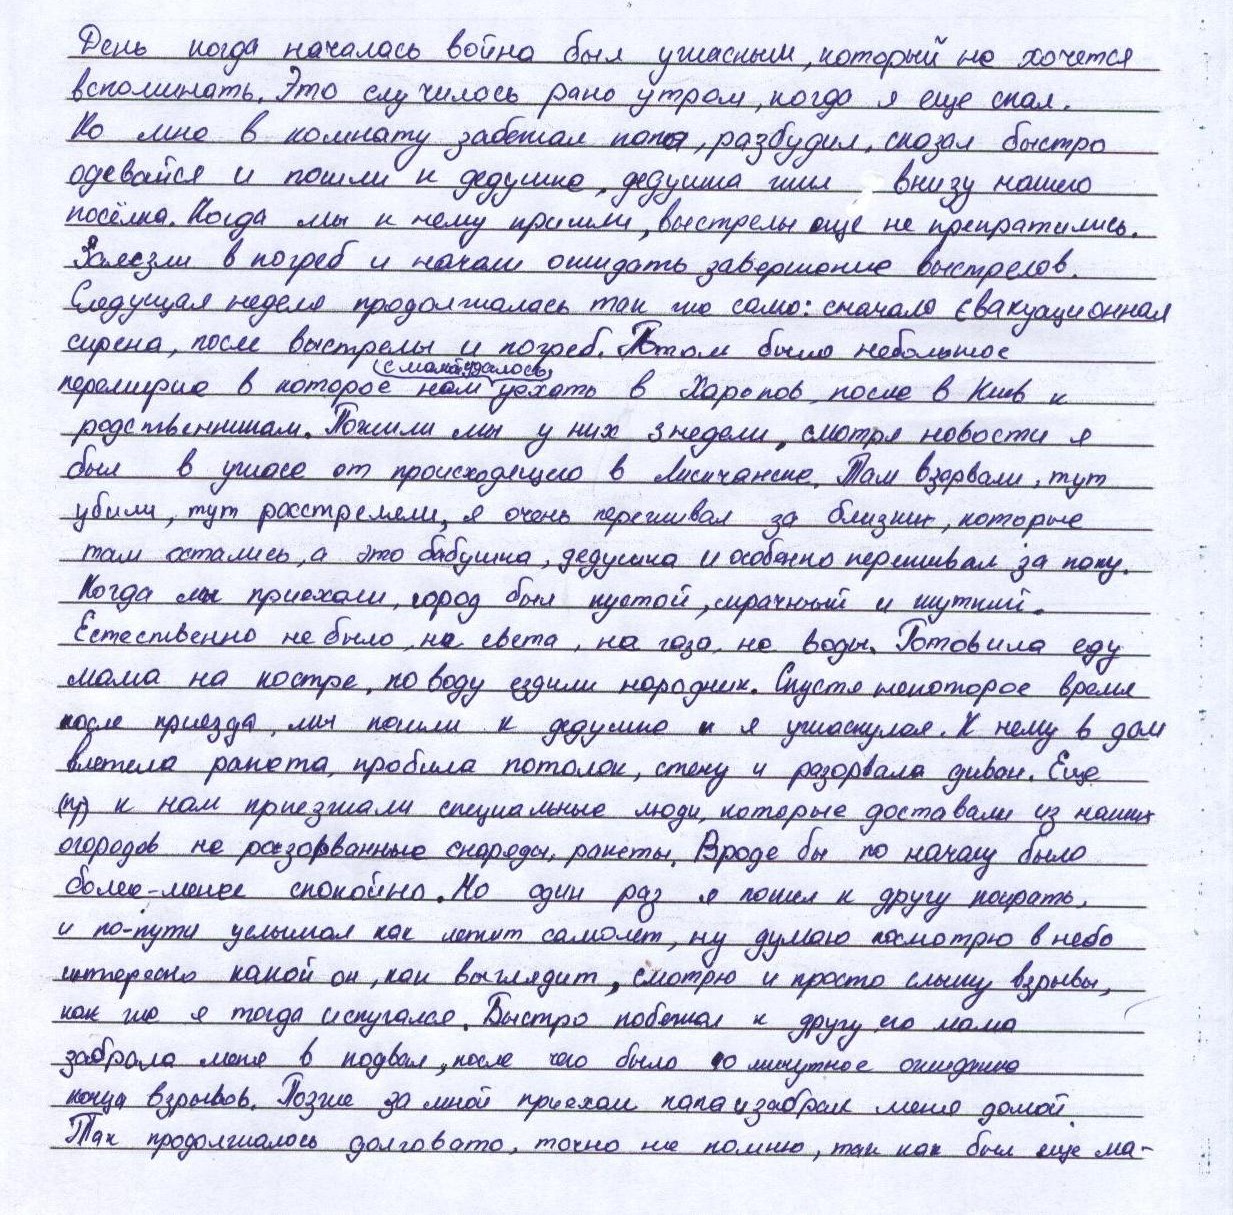 День когда началась война был ужасным, который не хочется
вспоминать. Это случилось рано утром, когда я еще спал.
Ко мне в комнату забежал папа, разбудил, сказал быстро
одевайся и пошли к дедушке, дедушка жил внизу нашего
посёлка. Когда мы к нему пришли, выстрелы еще не прекратились.
Залезли в погреб и начали ожидать завершение выстрелов.
Следущая неделя продолжалась так же само: сначала Євакуационная
сирена, после выстрелы и погреб. Потом было небольшое
(с мамой удалось)
перемирие в которое нам уехать в Харьков, после в Киев к
родственникам. Пожили мы у них 3 недели, смотря новости я
был в ужасе от происходящего в Лисичанске. Там взорвали, тут
убили, тут расстреляли, я очень переживал за близких, которые
там остались, а это бабушка, дедушка и особенно переживал за папу.
Когда мы приехали, город был пустой, мрачный и жуткий.
Естественно не было, не света, не газа, не воды. Готовила еду
мама на костре, по воду ездили народник. Спустя некоторое время
после приезда, мы пошли к дедушке и я ужаснулся. К нему в дом
влетела ракета, пробила потолок, стену и разорвала диван. Еще
(пр) к нам приезжали специальные люди, которые доставали из наших
огородов не разорванные снаряды, ракеты. Вроде бы по началу было
более-менее спокойно. Но один раз я пошел к другу поиграть,
и по-пути услышал как летит самолет, ну думаю посмотрю в небо
интересно какой он, как выглядит, смотрю и просто слышу взрывы,
как же я тогда испугался. Быстро побежал к другу его мама
забрала меня в подвал, после чего было 10 минутное ожидание
конца взрывов. Позже за мной приехал папа и забрал меня домой.
Так продолжалось долговато, точно не помню, так как был еще ма-